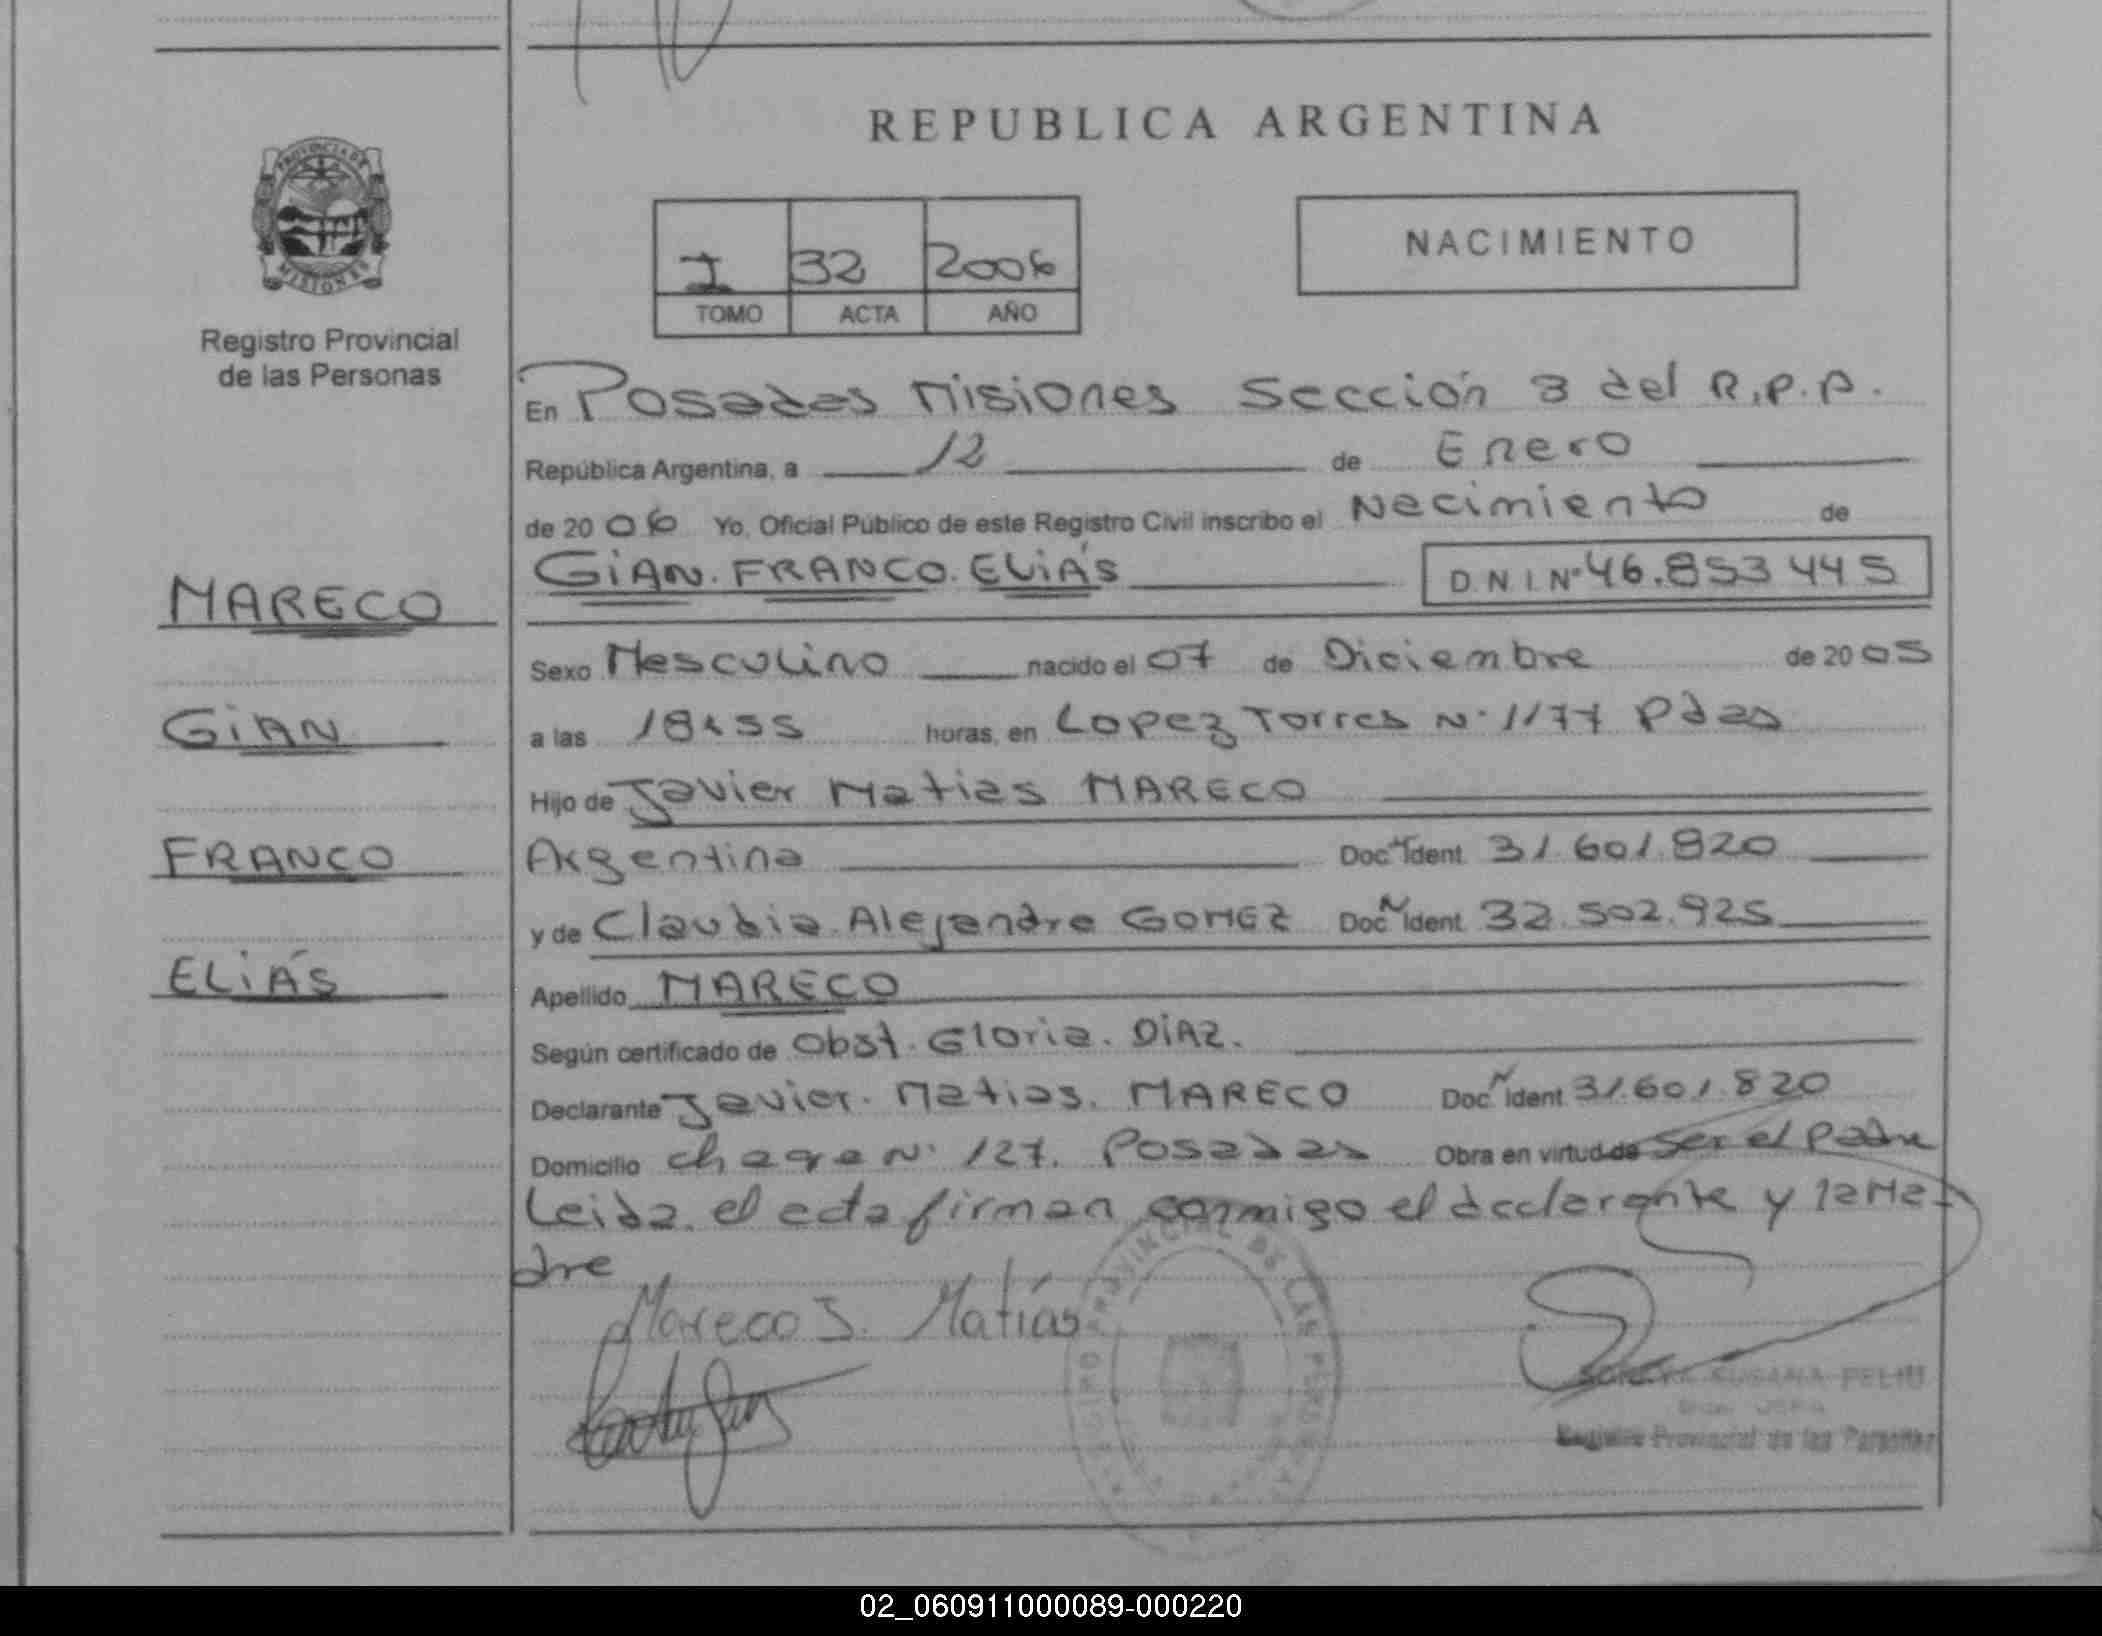 REPUBLICA ARGENTINA
PROVINCIA DE MISIONES
Registro Provincial
de las Personas
I 32 2006
TOMO ACTA AÑO
NACIMIENTO
En Posadas Misiones Sección 3 del R.P.P.
República Argentina, a 12 de Enero
de 2006 Yo, Oficial Público de este Registro Civil inscribo el Nacimiento de
GIAN. FRANCO. ELIÁS D.N.I. Nº 46.853 445
MARECO
GIAN
FRANCO
ELIÁS
Sexo Masculino nacido el 07 de Diciembre de 2005
a las 18:55 horas, en Lopez Torres Nº 1177 Pdas
Hijo de Javier Matias MARECO
Argentina Doc. Ident. 31.601.820
y de Claudia Alejandra GOMEZ Doc. Ident. 32.502.925
Apellido MARECO
Según certificado de Obst. Gloria. DIAZ.
Declarante Javier. Matias. MARECO Doc. Ident 31.601.820
Domicilio Chacra Nº 127. Posadas Obra en virtud de ser el padre
Leida el acta firman conmigo el declarante y la Ma-
dre
Mareco J. Matías
REGISTRO PROVINCIAL DE LAS PERSONAS
SUSANA FELIU
Registro Provincial de las Personas
02_060911000089-000220